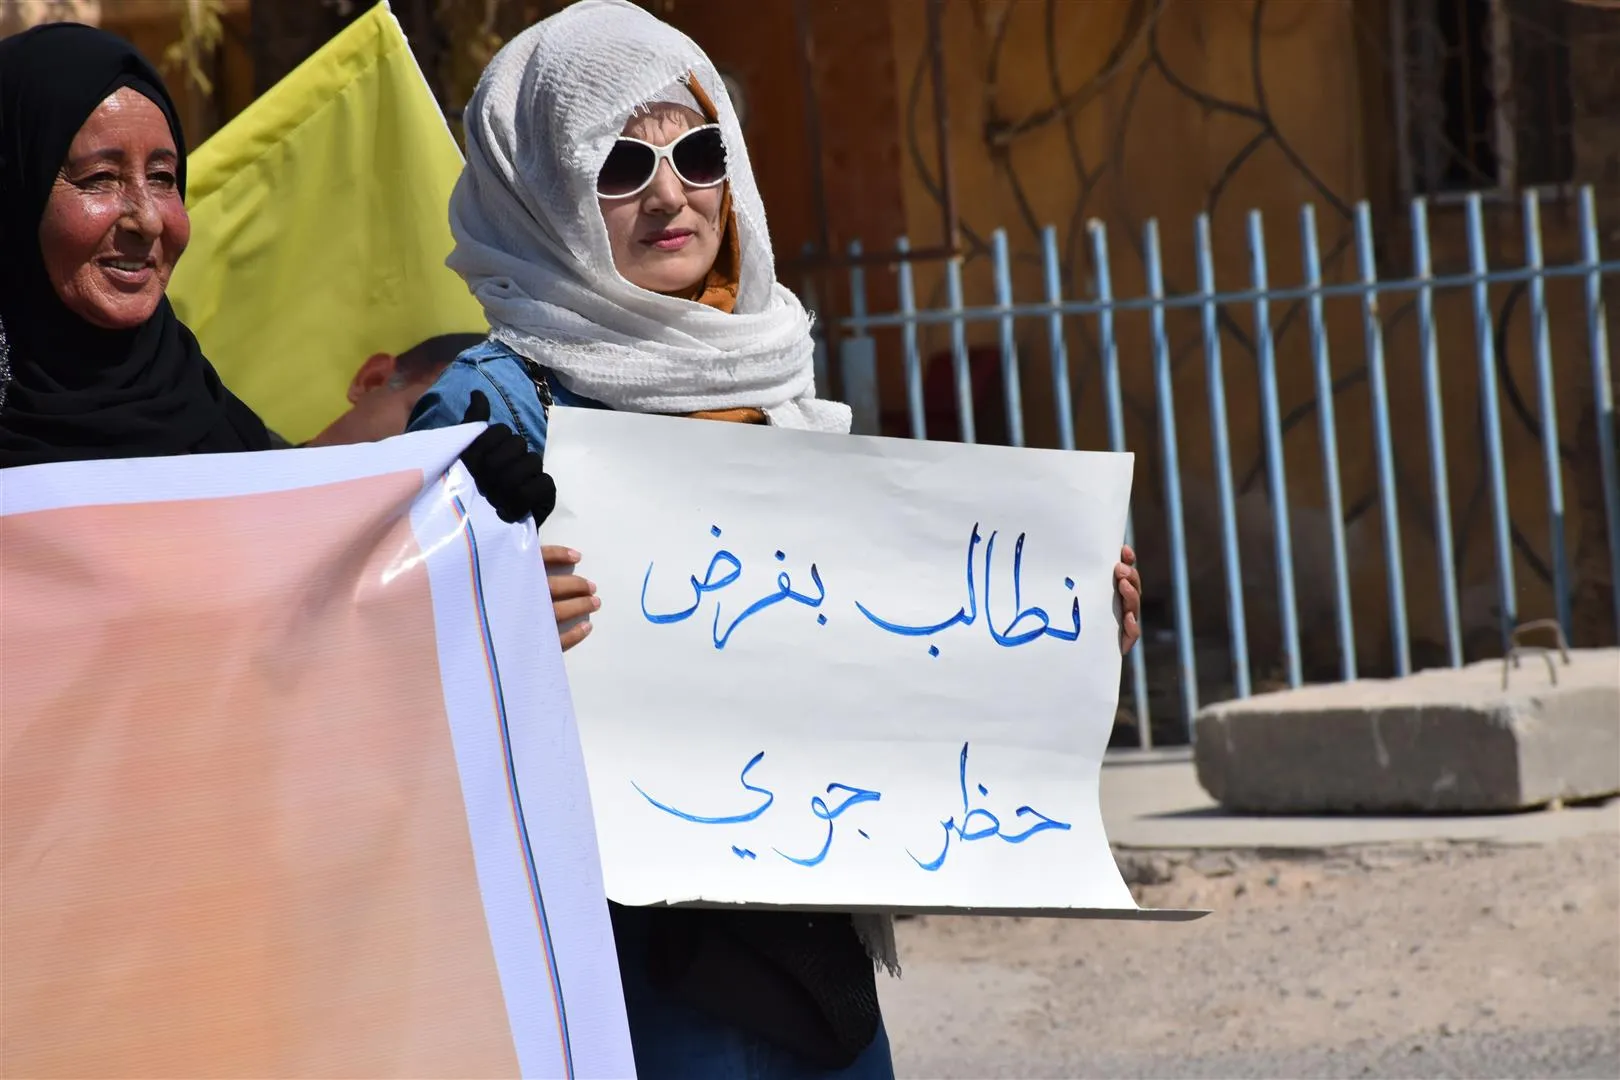 نطالب بفرض
حظر جوي